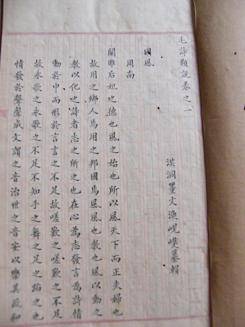 毛詩類說卷之一
洪洞董文渙峴嶕纂輯
國風
周南
關雎后妃之德也風之始也所以風天下而正夫婦也
故用之鄉人焉用之邦國焉風風也教也風以動之
教以化之詩者志之所之也在心為志發言為詩情
動於中而形於言言之不足故嗟歎之嗟歎之不足
故永歌之永歌之不足不知手之舞之足之蹈之也
情發於聲聲成文謂之音治世之音安以樂其政和